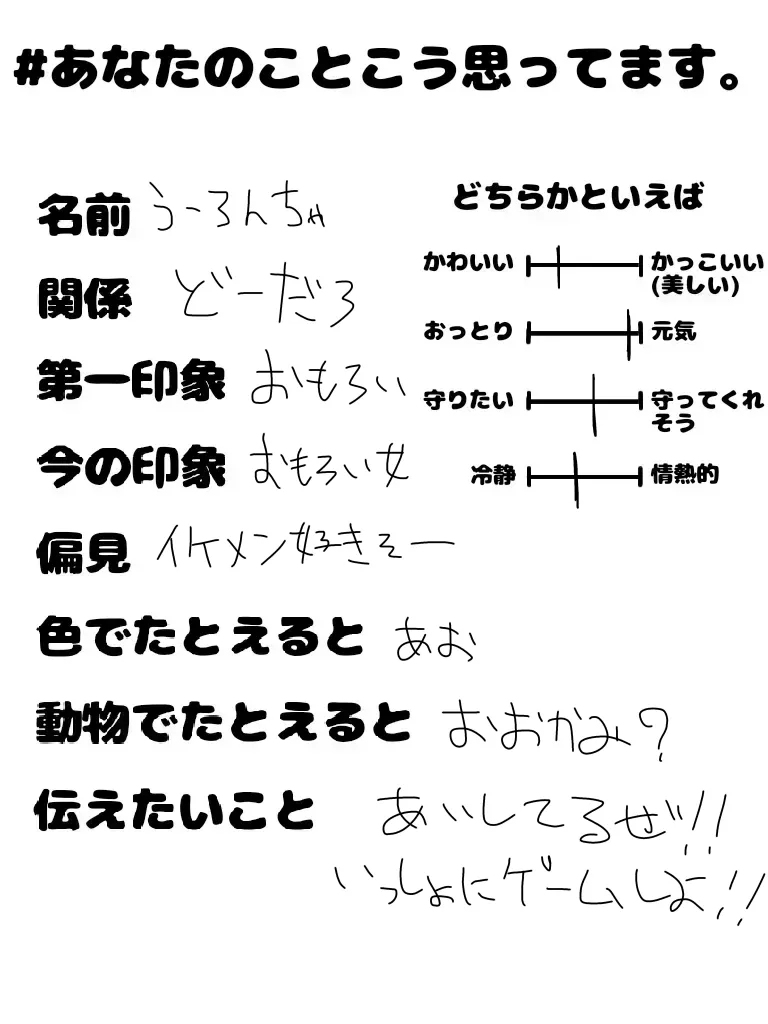 #あなたのことこう思ってます。
名前 うーろんちゃ
関係 どーだろ
第一印象 おもろい
今の印象 おもろい女
偏見 イケメン好きそー
色でたとえると あお
動物でたとえると おおかみ?
伝えたいこと あいしてるぜ!!
いっしょにゲームしよ!!
どちらかといえば
かわいい かっこいい
(美しい)
おっとり 元気
守りたい 守ってくれ
そう
冷静 情熱的